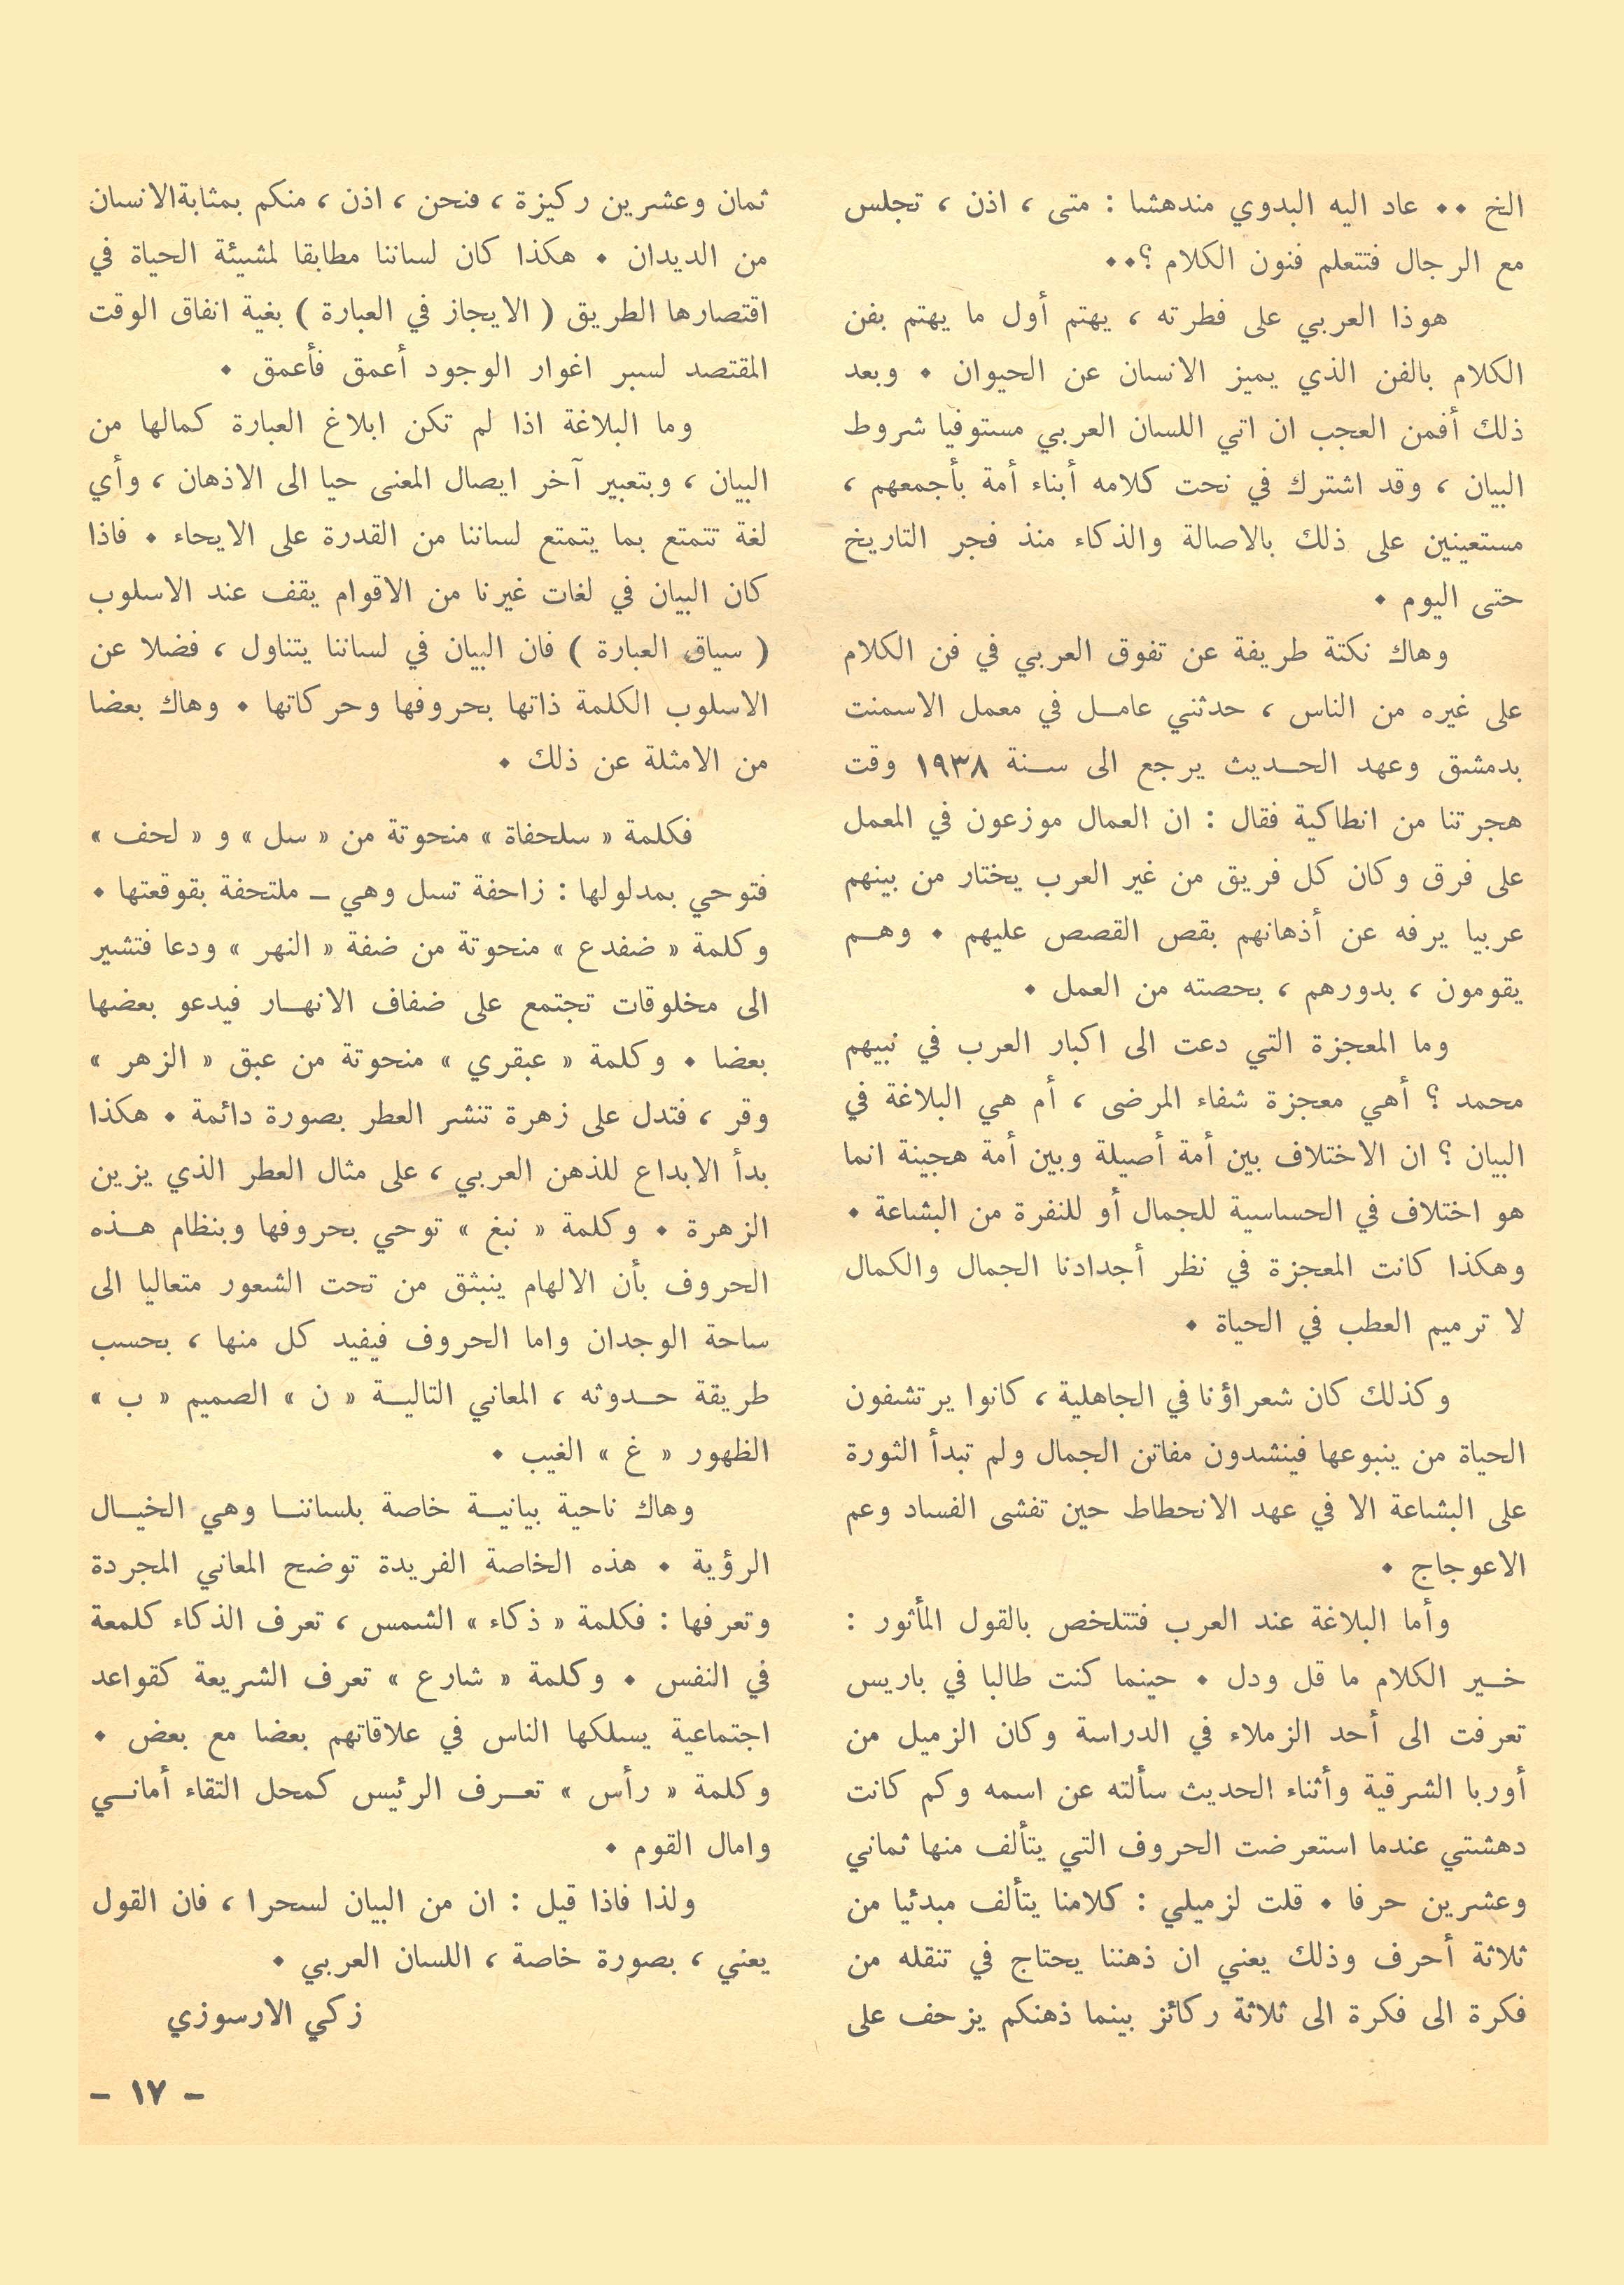 الخ ٠٠ عاد اليه البدوي مندهشا : متى ، اذن ، تجلس
مع الرجال فتتعلم فنون الكلام ؟٠٠
هوذا العربي على فطرته ، يهتم أول ما يهتم بفن
الكلام بالفن الذي يميز الانسان عن الحيوان ٠ وبعد
ذلك أفمن العجب ان اتي اللسان العربي مستوفيا شروط
البيان ، وقد اشترك في نحت كلامه أبناء أمة بأجمعهم ،
مستعينين على ذلك بالاصالة والذكاء منذ فجر التاريخ
حتى اليوم ٠
وهاك نكتة طريفة عن تفوق العربي في فن الكلام
على غيره من الناس ، حدثني عامل في معمل الاسمنت
بدمشق وعهد الحديث يرجع الى سنة ١٩٣٨ وقت
هجرتنا من انطاكية فقال : ان العمال موزعون في المعمل
على فرق وكان كل فريق من غير العرب يختار من بينهم
عربيا يرفه عن أذهانهم بقص القصص عليهم ٠ وهم
يقومون ، بدورهم ، بحصته من العمل ٠
وما المعجزة التي دعت الى اكبار العرب في نبيهم
محمد ؟ أهي معجزة شفاء المرضى ، أم هي البلاغة في
البيان ؟ ان الاختلاف بين أمة أصيلة وبين أمة هجينة انما
هو اختلاف في الحساسية للجمال أو للنفرة من البشاعة ٠
وهكذا كانت المعجزة في نظر أجدادنا الجمال والكمال
لا ترميم العطب في الحياة ٠
وكذلك كان شعراؤنا في الجاهلية ، كانوا يرتشفون
الحياة من ينبوعها فينشدون مفاتن الجمال ولم تبدأ الثورة
على البشاعة الا في عهد الانحطاط حين تفشى الفساد وعم
الاعوجاج ٠
وأما البلاغة عند العرب فتتلخص بالقول المأثور :
خير الكلام ما قل ودل ٠ حينما كنت طالبا في باريس
تعرفت الى أحد الزملاء في الدراسة وكان الزميل من
أوربا الشرقية وأثناء الحديث سألته عن اسمه وكم كانت
دهشتي عندما استعرضت الحروف التي يتألف منها ثماني
وعشرين حرفا ٠ قلت لزميلي : كلامنا يتألف مبدئيا من
ثلاثة أحرف وذلك يعني ان ذهننا يحتاج في تنقله من
فكرة الى فكرة الى ثلاثة ركائز بينما ذهنكم يزحف على
ثمان وعشرين ركيزة ، فنحن ، اذن ، منكم بمثابةالانسان
من الديدان ٠ هكذا كان لساننا مطابقا لمشيئة الحياة في
اقتصارها الطريق ( الايجاز في العبارة ) بغية انفاق الوقت
المقتصد لسبر اغوار الوجود أعمق فأعمق ٠
وما البلاغة اذا لم تكن ابلاغ العبارة كمالها من
البيان ، وبتعبير آخر ايصال المعنى حيا الى الاذهان ، وأي
لغة تتمتع بما يتمتع لساننا من القدرة على الايحاء ٠ فاذا
كان البيان في لغات غيرنا من الاقوام يقف عند الاسلوب
( سياق العبارة ) فان البيان في لساننا يتناول ، فضلا عن
الاسلوب الكلمة ذاتها بحروفها وحركاتها ٠ وهاك بعضا
من الامثلة عن ذلك ٠
فكلمة « سلحفاة » منحوتة من « سل » و « لحف »
فتوحي بمدلولها : زاحفة تسل وهي ــ ملتحفة بقوقعتها ٠
وكلمة « ضفدع » منحوتة من ضفة « النهر » ودعا فتشير
الى مخلوقات تجتمع على ضفاف الانهار فيدعو بعضها
بعضا ٠ وكلمة « عبقري » منحوتة من عبق « الزهر »
وقر ، فتدل على زهرة تنشر العطر بصورة دائمة ٠ هكذا
بدأ الابداع للذهن العربي ، على مثال العطر الذي يزين
الزهرة ٠ وكلمة « نبغ » توحي بحروفها وبنظام هذه
الحروف بأن الالهام ينبثق من تحت الشعور متعاليا الى
ساحة الوجدان واما الحروف فيفيد كل منها ، بحسب
طريقة حدوثه ، المعاني التالية « ن » الصميم « ب »
الظهور « غ » الغيب ٠
وهاك ناحية بيانية خاصة بلساننا وهي الخيال
الرؤية ٠ هذه الخاصة الفريدة توضح المعاني المجردة
وتعرفها : فكلمة « ذكاء » الشمس ، تعرف الذكاء كلمعة
في النفس ٠ وكلمة « شارع » تعرف الشريعة كقواعد
اجتماعية يسلكها الناس في علاقاتهم بعضا مع بعض ٠
وكلمة « رأس » تعرف الرئيس كمحل التقاء أماني
وامال القوم ٠
ولذا فاذا قيل : ان من البيان لسحرا ، فان القول
يعني ، بصورة خاصة ، اللسان العربي ٠
زكي الارسوزي
– ١٧ –